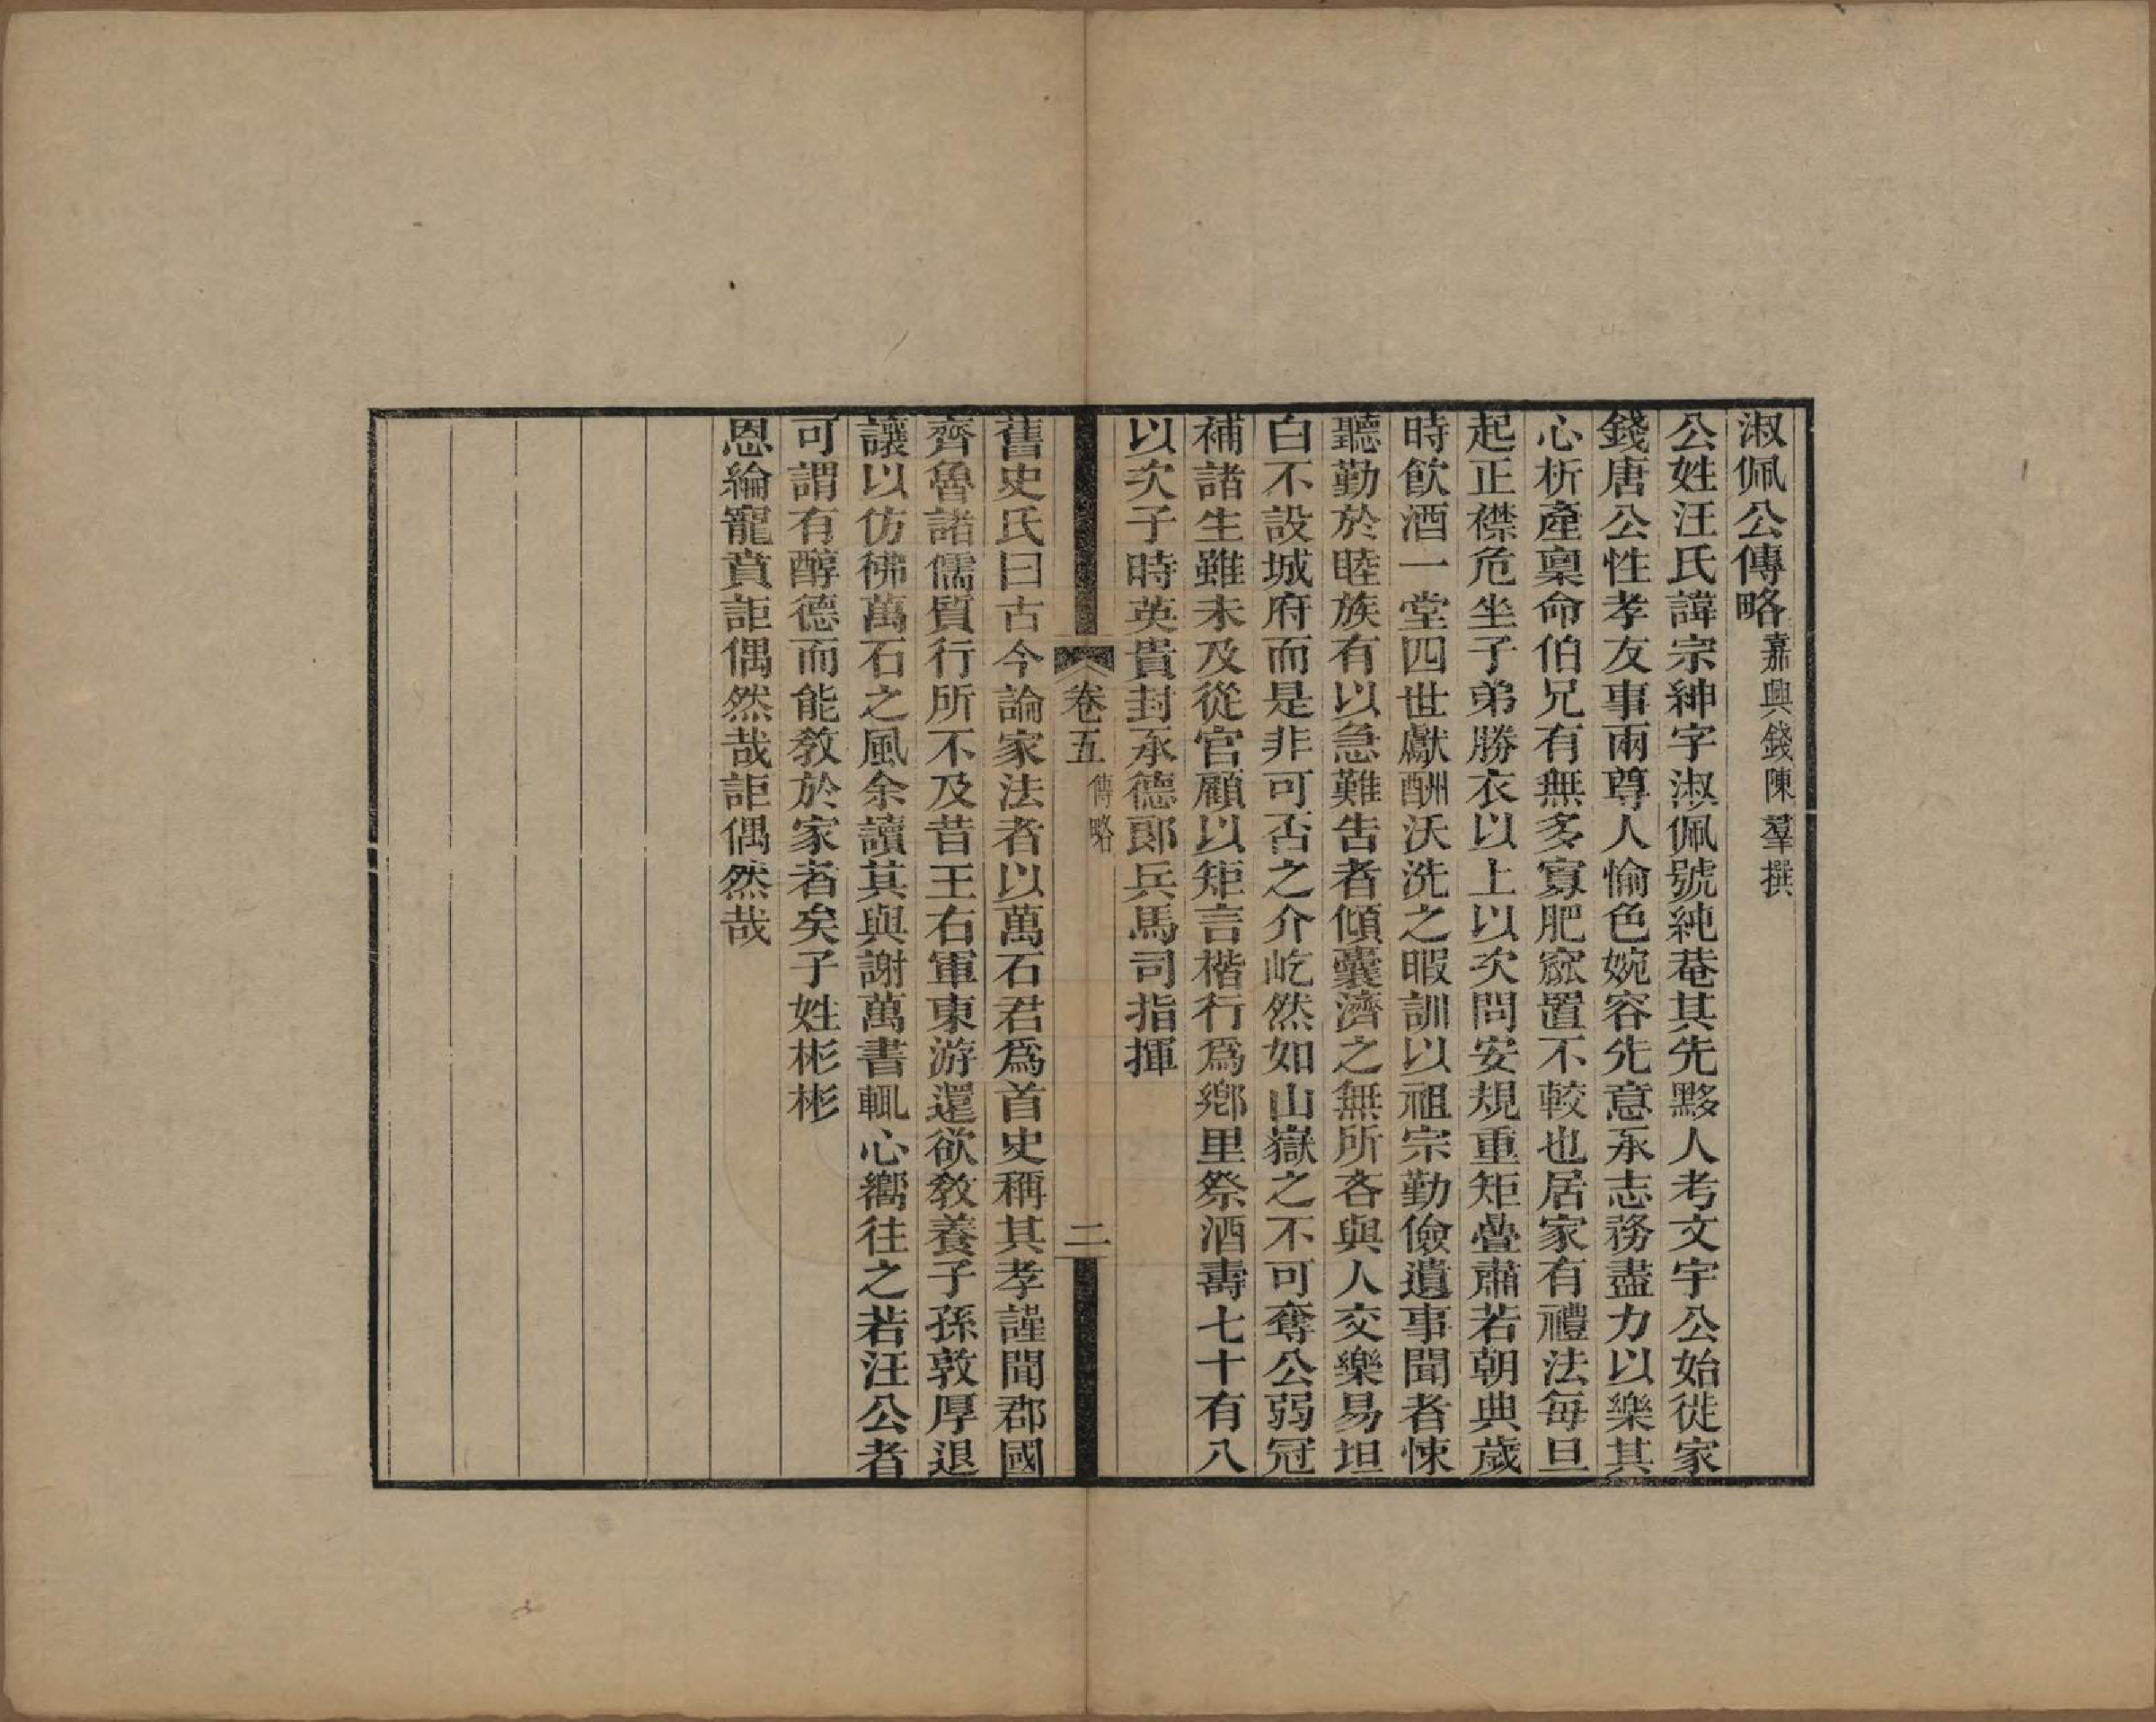 淑佩公傳略嘉興錢陳羣撰
公姓汪氏諱宗紳字淑佩號純菴其先黟人考文宇公始徙家
錢唐公性孝友事兩尊人愉色婉容先意承志務盡力以樂其
心析產稟命伯兄有無多寡肥窳置不較也居家有禮法每旦
起正襟危坐子弟勝衣以上以次問安規重矩疊肅若朝典歲
時飲酒一堂四世獻酬沃洗之暇訓以祖宗勤儉遺事聞者悚
聽勤於睦族有以急難告者傾囊濟之無所吝與人交樂易坦
白不設城府而是非可否之介屹然如山嶽之不可奪公弱冠
補諸生雖未及從官顧以矩言楷行爲鄕里祭酒壽七十有八
以次子時英貴封承德郞兵馬司指揮
卷五 傳略 二
舊史氏曰古今論家法者以萬石君爲首史稱其孝謹聞郡國
齊魯諸儒質行所不及昔王右軍東游還欲敎養子孫敦厚退
讓以仿彿萬石之風余讀其與謝萬書輒心嚮往之若汪公者
可謂有醇德而能敎於家者矣子姓彬彬
恩綸寵賁詎偶然哉詎偶然哉